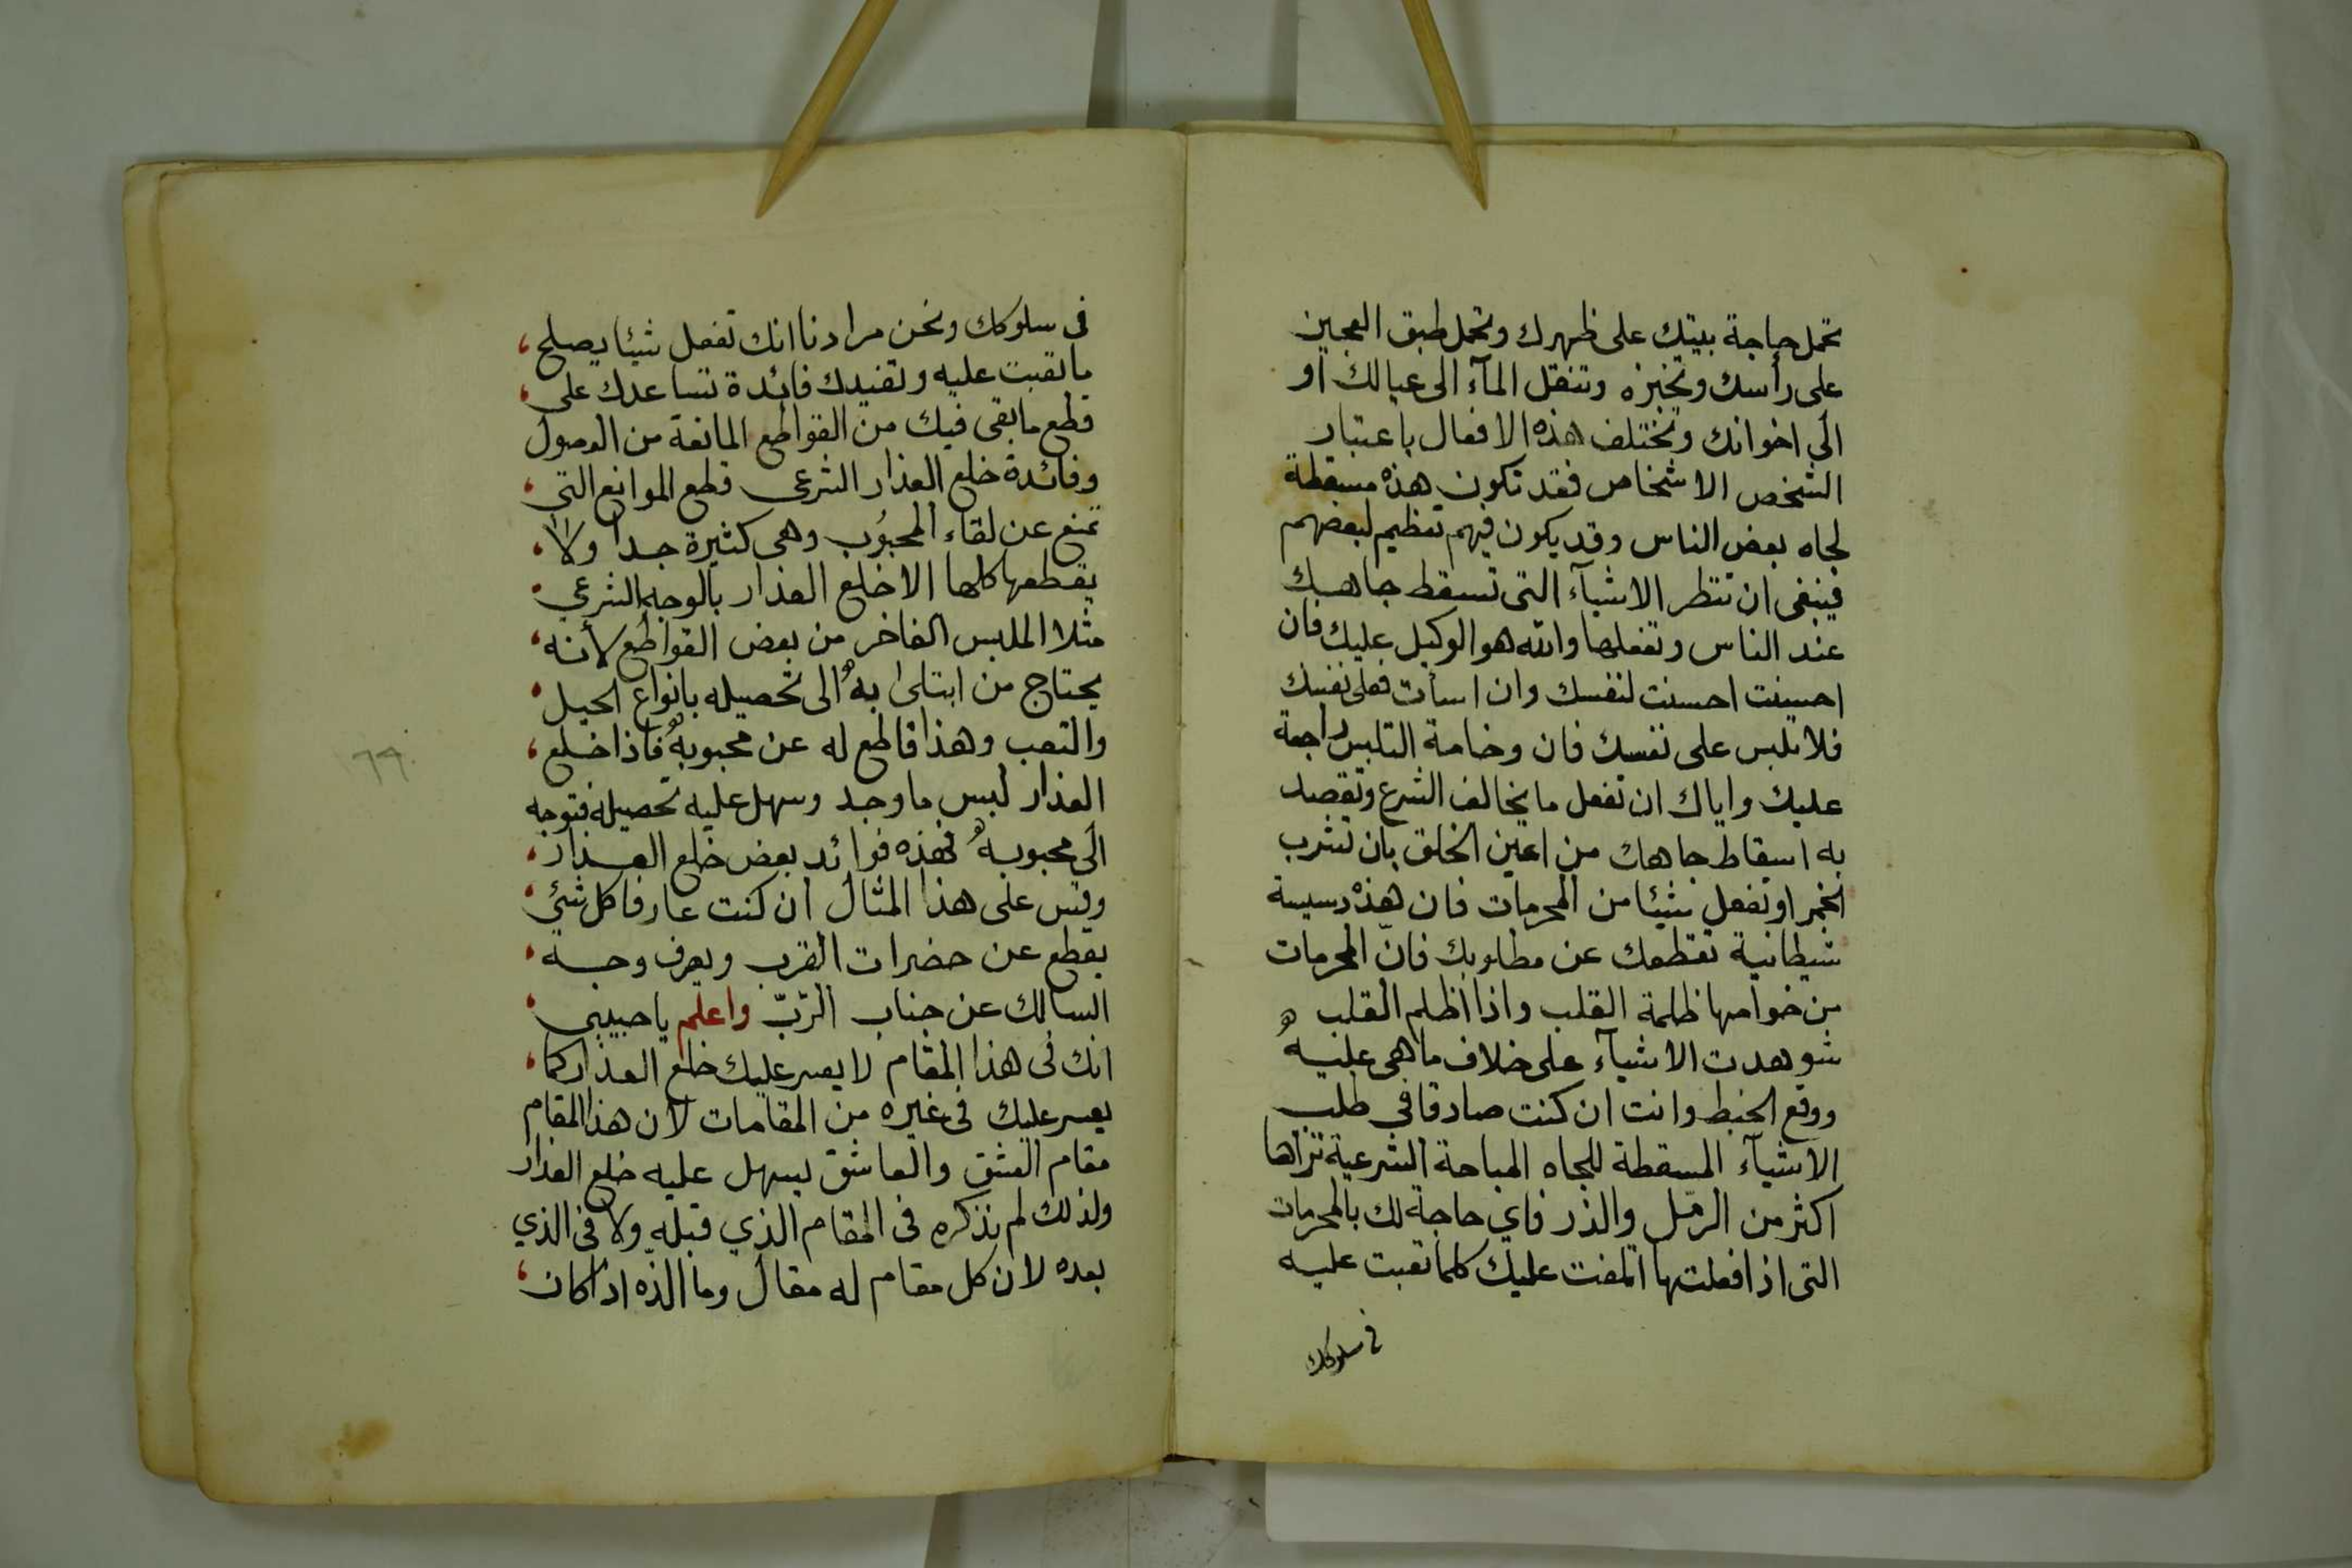 تحمل حاجة بيتك على ظهرك وتحمل طبق العجين
على رأسك وتخبزه وتنقل المآء الى عيالك او
الى اخوانك وتختلف هذه الافعال باعتبار
الشخص الاشخاص فقد تكون هذه مسقطة
لجاه بعض الناس وقد يكون فيهم تعظيم لبعضهم
فينبغى ان تنظر الاشيآء التى تسقط جاهك
عند الناس وتفعلها والله هو الوكيل عليك فان
احسنت احسنت لنفسك وان اسأت فعلى نفسك
فلا تلبس على نفسك فان وخامة التلبيس راجعة
عليك واياك ان تفعل ما يخالف الشرع وتقصد
به اسقاط جاهك من اعين الخلق بان تشرب
الخمر او تفعل شيئا من المحرمات فان هذه دسيسة
شيطانية تقطعك عن مطلوبك فانّ المحرمات
من خواصها ظلمة القلب واذا اظلم القلب
شوهدت الاشيآء على خلاف ما هى عليه
ووقع الخبط وانت ان كنت صادقا فى طلب
الاشيآء المسقطة للجاه المباحة الشرعية تراها
اكثر من الرمل والذر فاي حاجة لك بالمحرمات
التى اذا فعلتها اتلفت عليك كلما تعبت عليه
فى سلوكك
فى سلوكك ونحن مرادنا انك تفعل شيئا يصلح
ما تعبت عليه وتفيدك فائدة تساعدك على
قطع ما بقى فيك من القواطع المانعة من الوصول
وفائدة خلع العذار الشرعى قطع الموانع التى
تمنع عن لقاء المحبوب وهى كثيرة جدا ولا
يقطعها كلها الا خلع العذار بالوجه الشرعي
مثلا الملبس الفاخر من بعض القواطع لأنه
يحتاج من ابتلى به الى تحصيله بانواع الحيل
والتعب وهذا قاطع له عن محبوبه فاذا خلع
العذار لبس ما وجد وسهل عليه تحصيله فتوجه
الى محبوبه فهذه فوائد بعض خلع العذار
وقس على هذا المثال ان كنت عارفا كل شئ
يقطع عن حضرات القرب ويصرف وجه
السالك عن جناب الرّبّ واعلم يا حبيبى
انك فى هذا المقام لا يعسر عليك خلع العذار كما
يعسر عليك فى غيره من المقامات لان هذا المقام
مقام العشق والعاشق يسهل عليه خلع العذار
ولذلك لم نذكره فى المقام الذي قبله ولا فى الذي
بعده لان كل مقام له مقال وما الذّه اذا كان